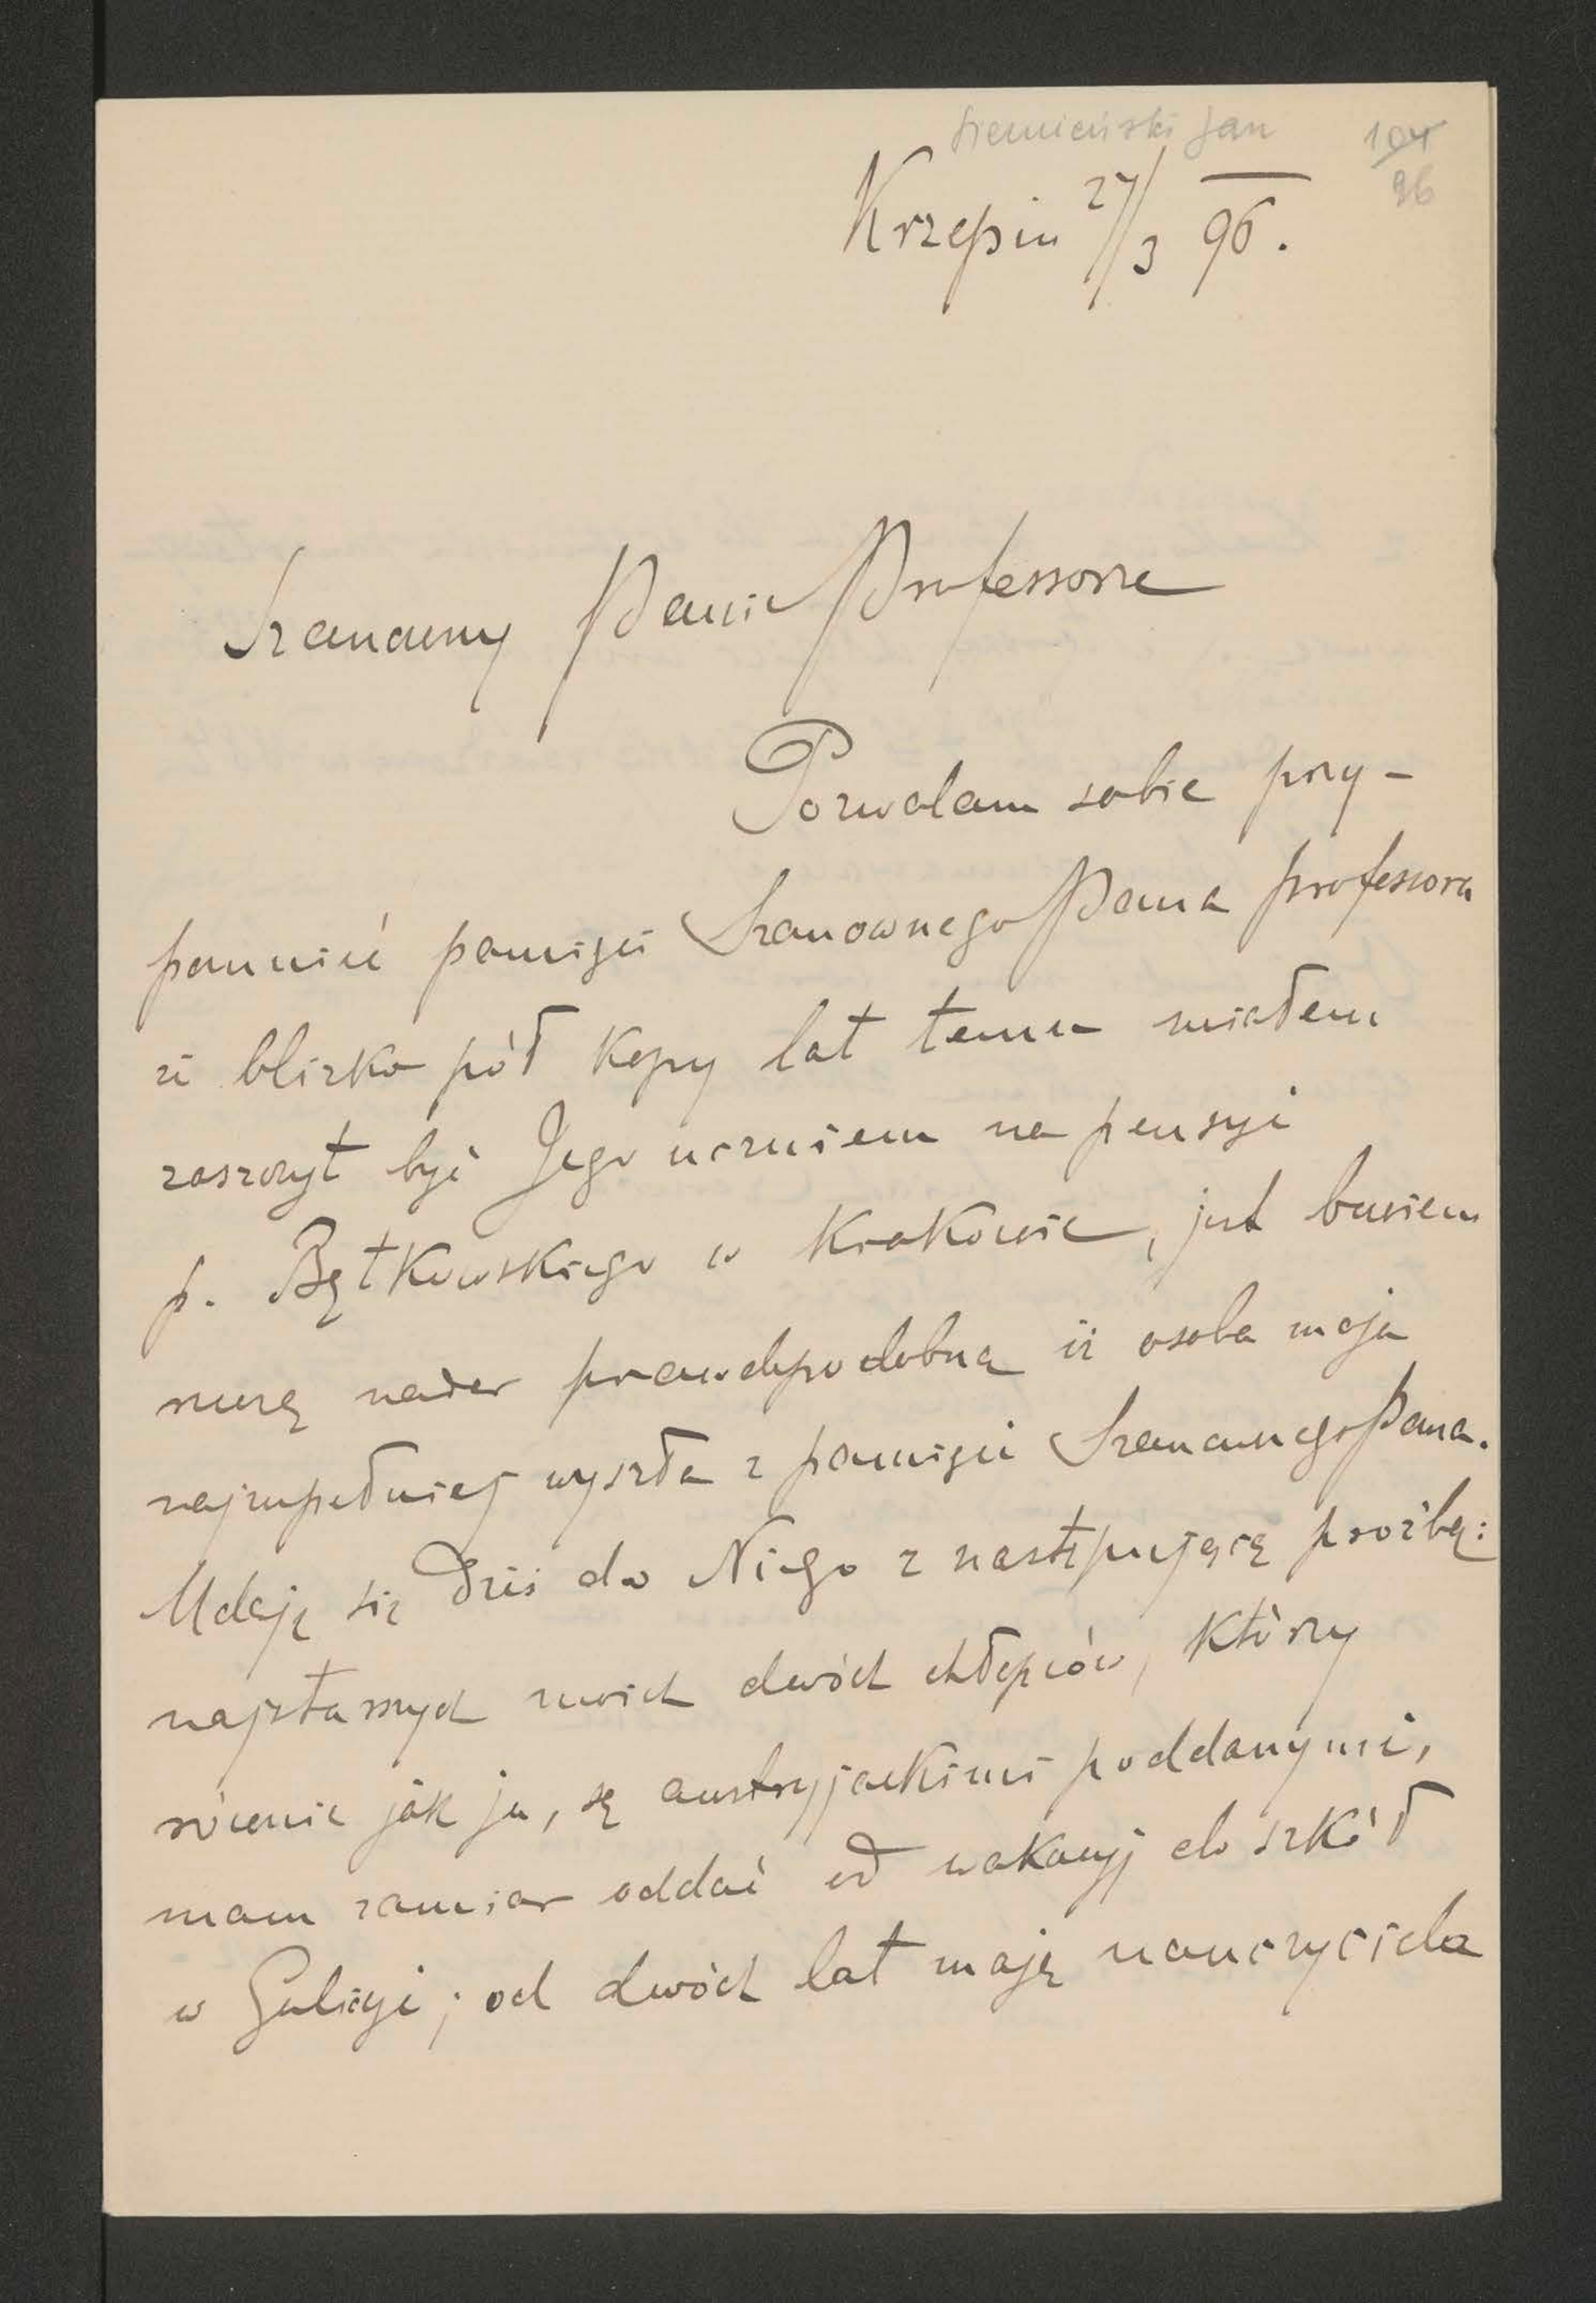 Siemieński Jan
104
96
Krzepin 27/3 96.
Szanowny Panie Professorze
Pozwalam sobie przy-
pomnieć pamięci Szanownego Pana Professora
że blizko pół kopy lat temu miałem
zaszczyt być Jego uczniem na pensyi
p. Bętkowskiego w Krakowie, jest bowiem
rzeczą nader prawdopodobną iż osoba moja
najzupełniej wyszła z pamięci Szanownego Pana.
Udaję się dziś do Niego z następującą proźbą:
najstarszych moich dwóch chłopców, którzy
równie jak ja, są austryjackimi poddanymi,
mam zamiar oddać od wakacyj do szkół
w Galicyi; od dwóch lat mają nauczyciela